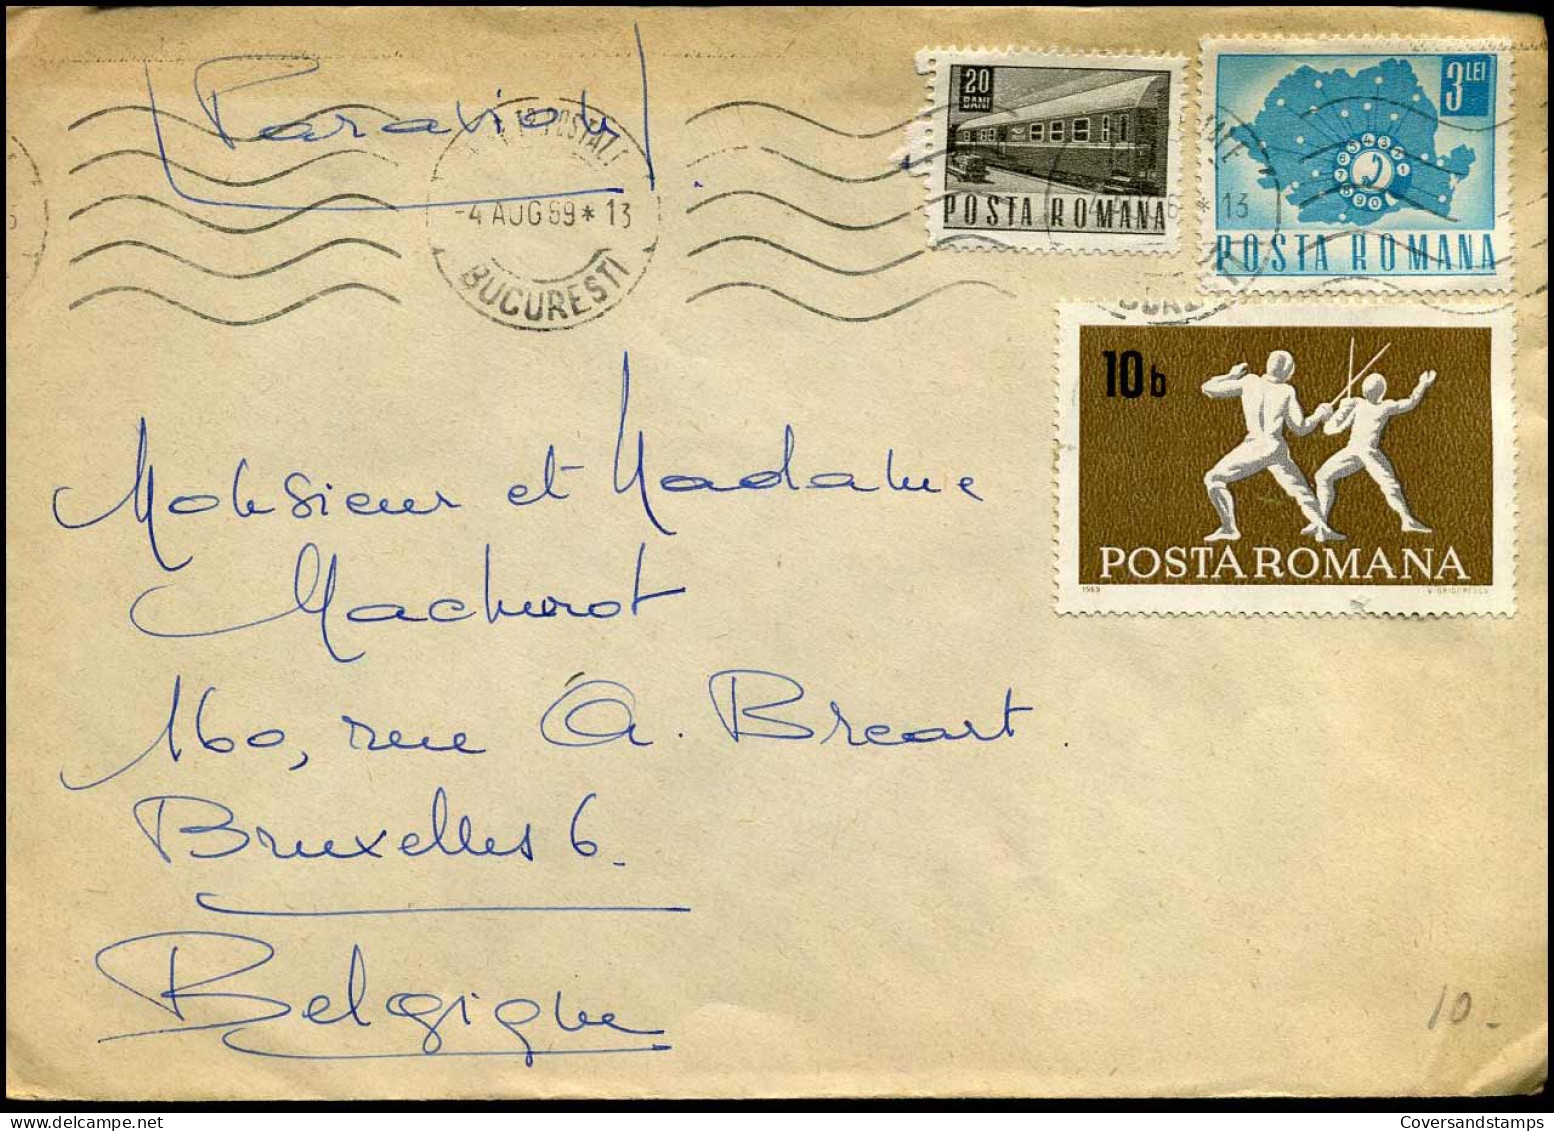 Par avion
20 BANI
POSTA ROMANA
3 LEI
POSTA ROMANA
-4 AUG 69 * 13
BUCURESTI
* 13
10 b
POSTA ROMANA
1969
Monsieur et Madame
Macherot
160, rue A. Breart.
Bruxelles 6.
Belgique
10 -
Coversandstamps